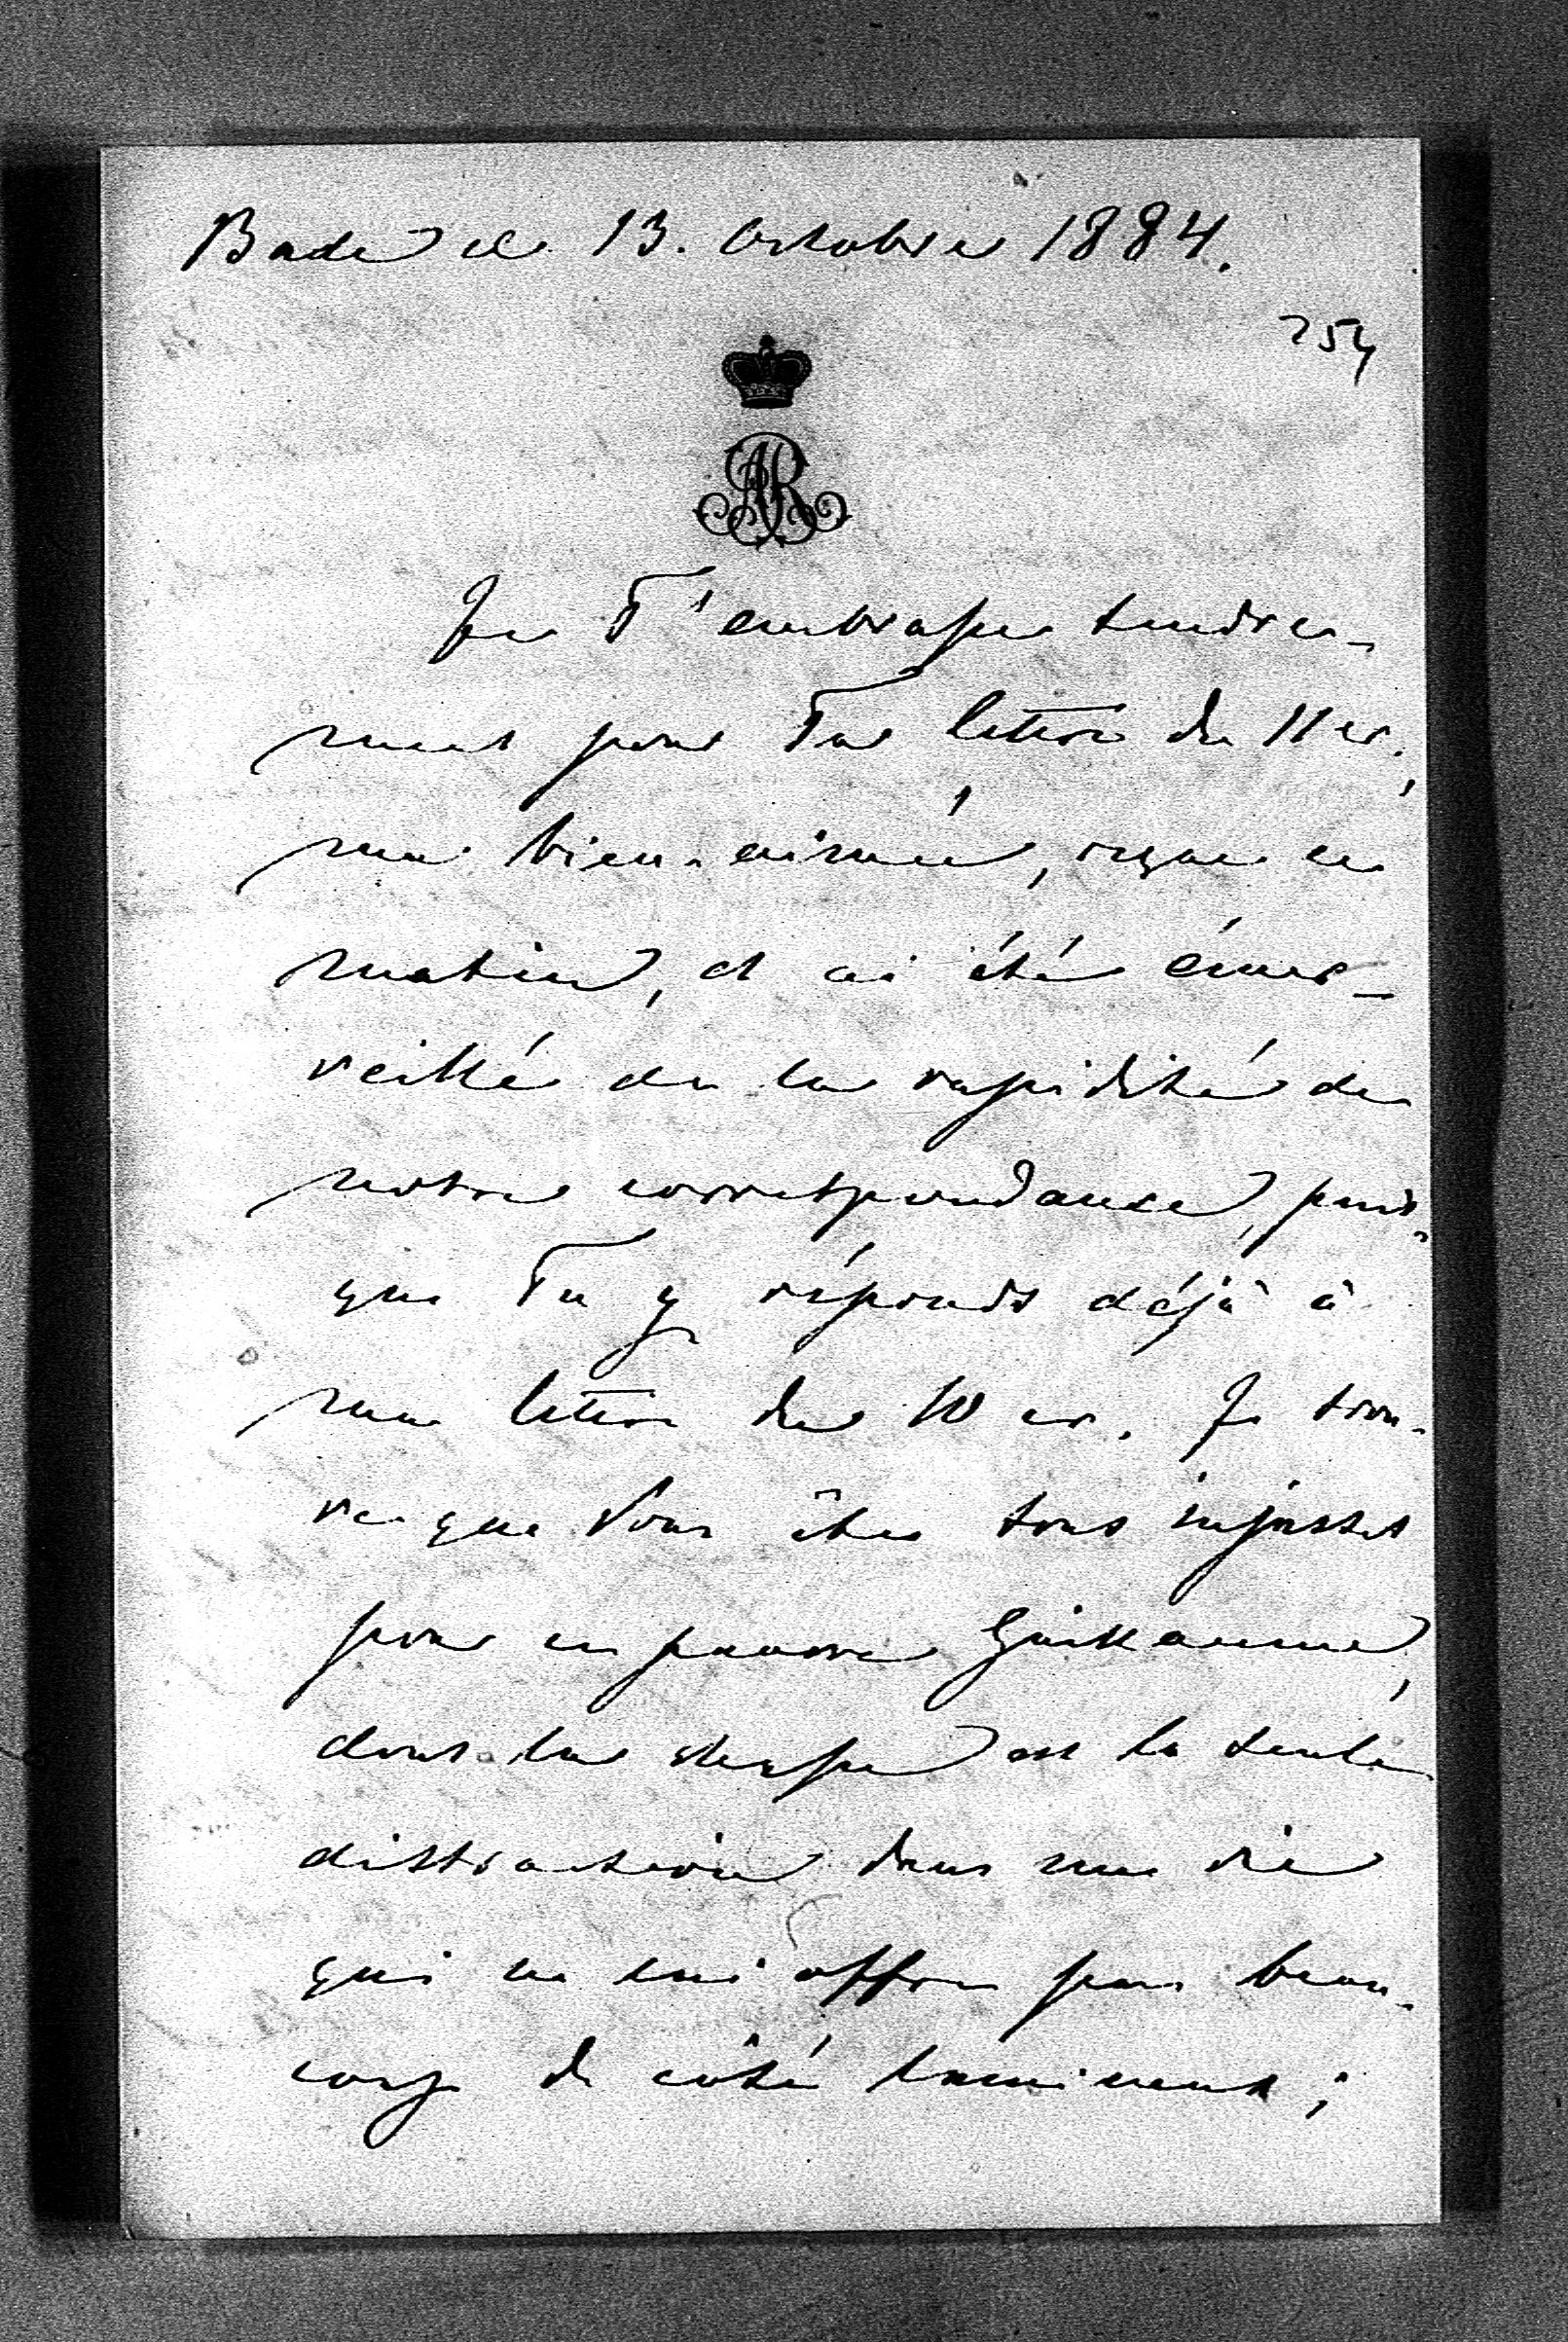 Bade ce 13. Octobre 1884.
254
AR
Je T'embrasse tendre-
ment pour Ta lettre du 11 cr.,
ma bien-aimée, reçue ce
matin, et ai été émer-
veillé de la rapidité de
notre correspondance, puis-
que Tu y réponds déjà à
ma lettre du 10 cr. Je trou-
ve que Vous êtes tous injustes
pour ce pauvre Guillaume,
dont la chasse est la seule
distraction dans une vie
qui ne lui offre pas beau-
coup de côté lumineux;